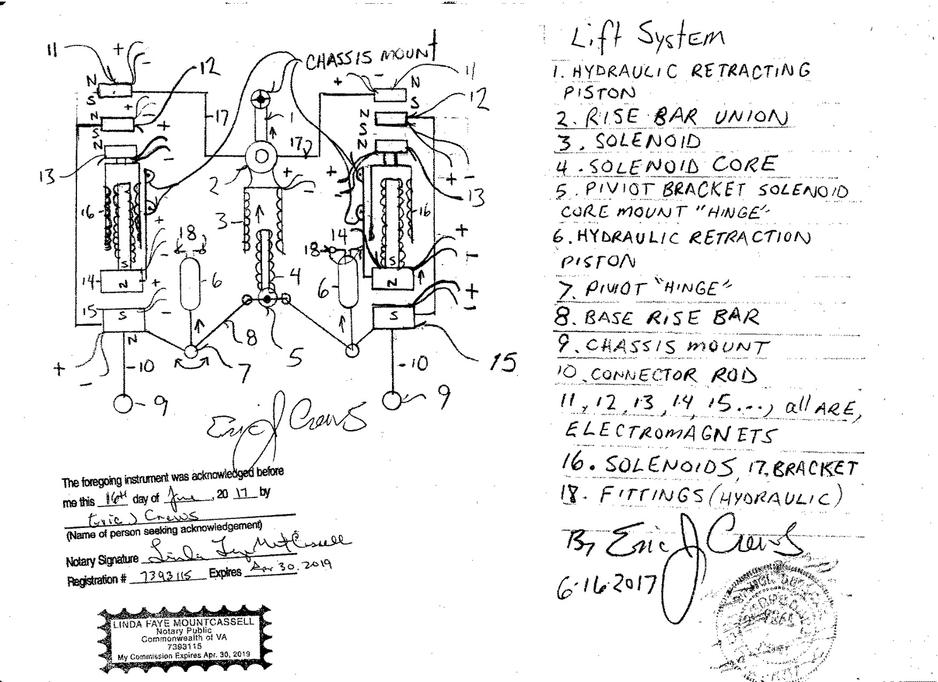 11
+
-
12
CHASSIS MOUNT
+
-
11
12
N
S
+
-
N
S
17
1
17
N
S
N
S
N
+
-
13
N
2
+
-
+
-
13
16
3
+
-
14
16
18
18
+
-
S
N
14
+
-
6
4
6
S
N
+
-
15
+
-
S
N
8
S
+
-
10
7
5
10
15
9
9
Eric J Crews
The foregoing instrument was acknowledged before
me this 16th day of June, 2017 by
Eric J Crews
(Name of person seeking acknowledgement)
Notary Signature Linda Faye Mountcassell
Registration # 7393115 Expires Apr 30, 2019
LINDA FAYE MOUNTCASSELL
Notary Public
Commonwealth of VA
7393115
My Commission Expires Apr. 30, 2019
Lift System
1. HYDRAULIC RETRACTING
PISTON
2. RISE BAR UNION
3. SOLENOID
4. SOLENOID CORE
5. PIVIOT BRACKET SOLENOID
CORE MOUNT "HINGE"
6. HYDRAULIC RETRACTION
PISTON
7. PIVIOT "HINGE"
8. BASE RISE BAR
9. CHASSIS MOUNT
10. CONNECTOR ROD
11, 12, 13, 14, 15..., all ARE,
ELECTROMAGNETS
16. SOLENOIDS, 17. BRACKET
18. FITTINGS (HYDRAULIC)
By Eric J Crews
6-16-2017